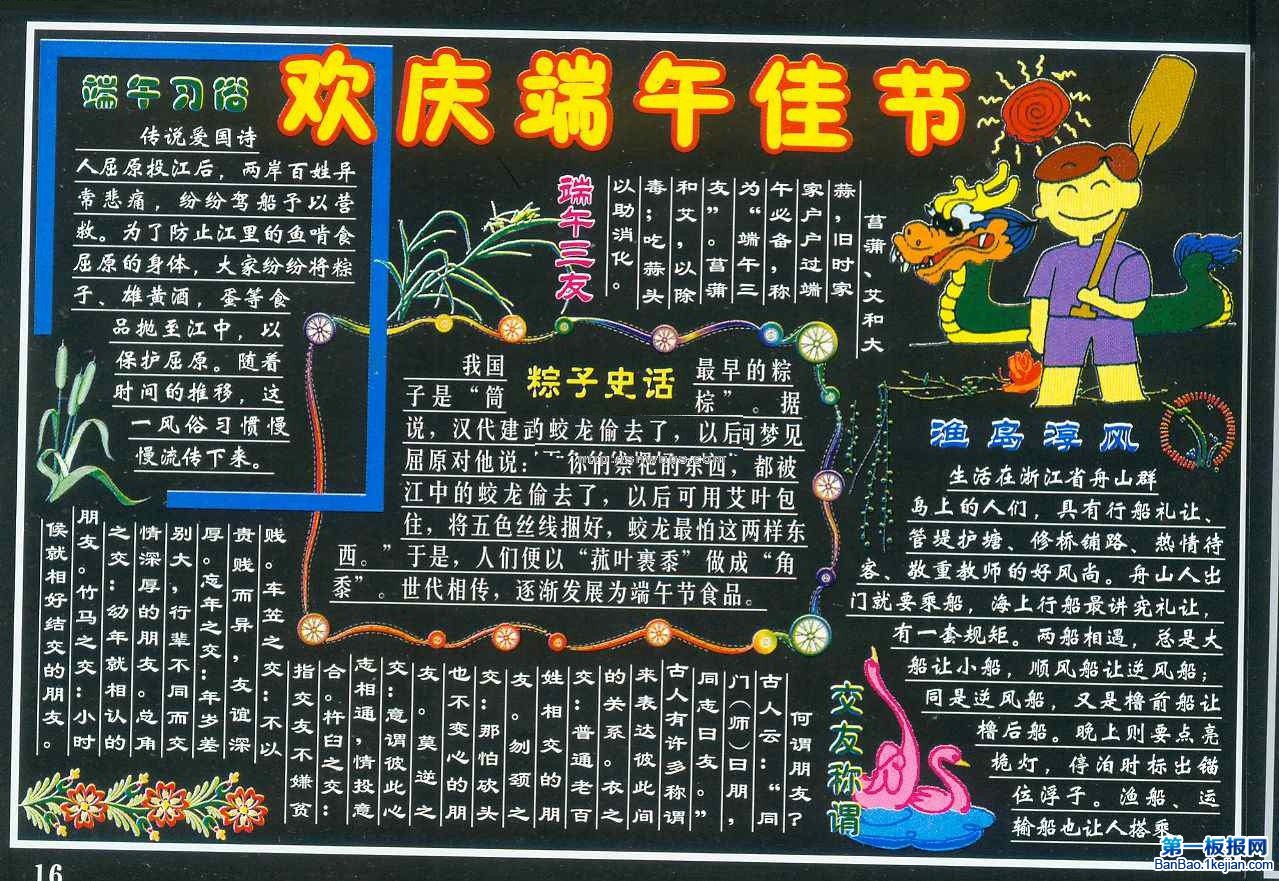 欢庆端午佳节
端午习俗
传说爱国诗
人屈原投江后，两岸百姓异
常悲痛，纷纷驾船予以营
救。为了防止江里的鱼啃食
屈原的身体，大家纷纷将粽
子、雄黄酒，蛋等食
品抛至江中，以
保护屈原。随着
时间的推移，这
一风俗习惯慢
慢流传下来。
端午三友
菖蒲、艾和大
蒜，旧时家
家户户过端
午必备，称
为“端午三
友”。菖蒲
和艾，以除
毒；吃蒜头
以助消化。
粽子史话
我国最早的粽
子是“筒棕”。据
说，汉代建武蛟龙偷去了，以后可梦见
屈原对他说：
你的祭祀的东西，都被
江中的蛟龙偷去了，以后可用艾叶包
住，将五色丝线捆好，蛟龙最怕这两样东
西。”于是，人们便以“菰叶裹黍”做成“角
黍”。世代相传，逐渐发展为端午节食品。
渔岛淳风
生活在浙江省舟山群
岛上的人们，具有行船礼让、
管堤护塘、修桥铺路、热情待
客、敬重教师的好风尚。舟山人出
门就要乘船，海上行船最讲究礼让，
有一套规矩。两船相遇，总是大
船让小船，顺风船让逆风船；
同是逆风船，又是橹前船让
橹后船。晚上则要点亮
桅灯，停泊时标出锚
位浮子。渔船、运
输船也让人搭乘
交友称谓
何谓朋友？
古人云：“同
门（师）曰朋，
同志曰友。”
古人有许多称谓
来表达彼此间
的关系。布衣之
交：普通老百
姓相交的朋
友。刎颈之
交：那怕砍头
也不变心的朋
友。莫逆之
交：意谓彼此心
志相通，情投意
合。杵臼之交：
指交友不嫌贫
贱。车笠之交：不以
贵贱而异，友谊深
厚。忘年之交：年岁差
别大，行辈不同而交
情深厚的朋友。总角
之交：幼年就相认的
朋友。竹马之交：小时
候就相好结交的朋友。
16
第一板报网
BanBao.1kejian.com